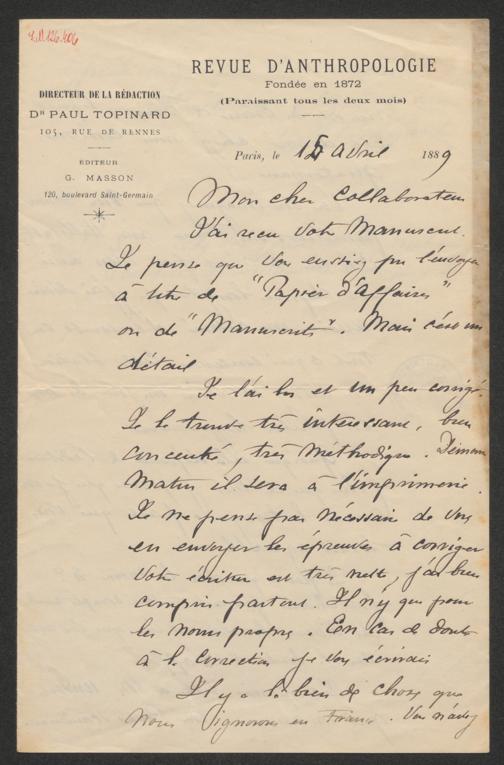 REVUE D'ANTHROPOLOGIE
Fondée en 1872
(Paraissant tous les deux mois)
DIRECTEUR DE LA RÉDACTION
DR PAUL TOPINARD
105, RUE DE RENNES
EDITEUR
G. MASSON
120, boulevard Saint-Germain
Paris, le 15 Avril 1889
Mon cher Collaborateur
J'ai reçu votre Manuscrit.
Je pense que vous eussiez pu l'envoyer
à titre de "Papier d'affaires"
ou de "Manuscrits". Mais c'est un
détail
Je l'ai lu et un peu corrigé.
Je le trouve très intéressant, bien
concentré, très méthodique. Demain
matin il sera à l'imprimerie.
Je ne pense pas nécessaire de vous
en envoyer les épreuves à corriger
Votre écriture est très nette, j'ai bien
compris partout. Il n'y a que pour
les noms propres. En cas de doute
à la correction je vous écrirais
Il y a là bien des choses que
nous ignorons en France. Vous n'avez